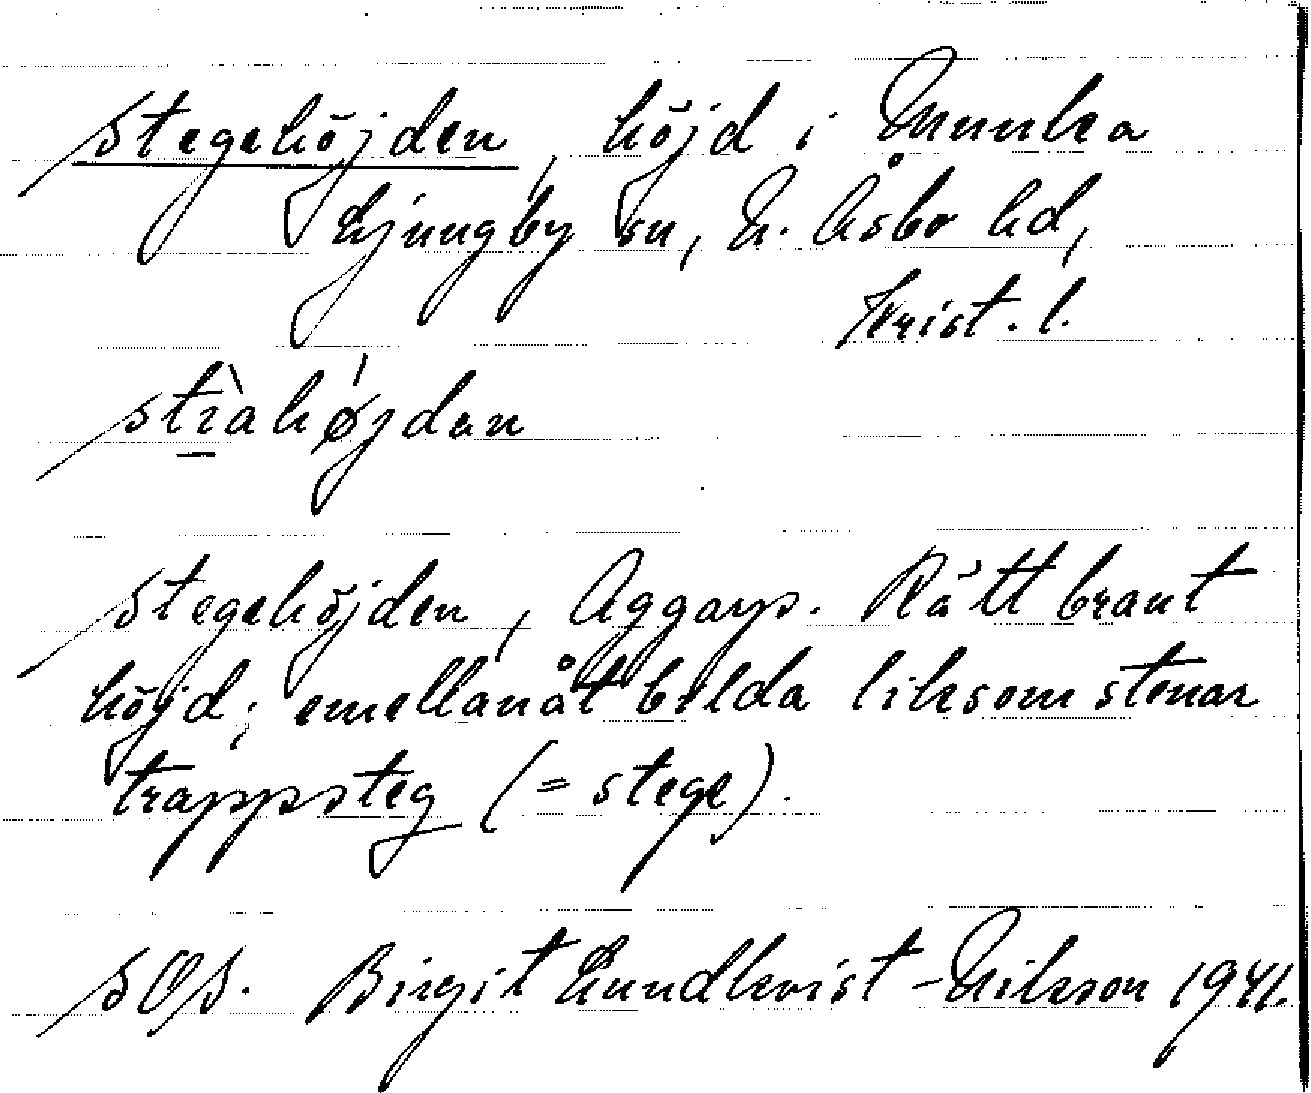 Stegehöjden, höjd i Munka
Ljungby sn, N. Åsbo hd,
Krist. l.
stìahǿjdan
Stegehöjden, Aggarp. Rätt brant
höjd; emellanåt bilda liksom stenar
trappsteg (= stege).
SOS. Birgit Lundkvist-Nilsson 1941.